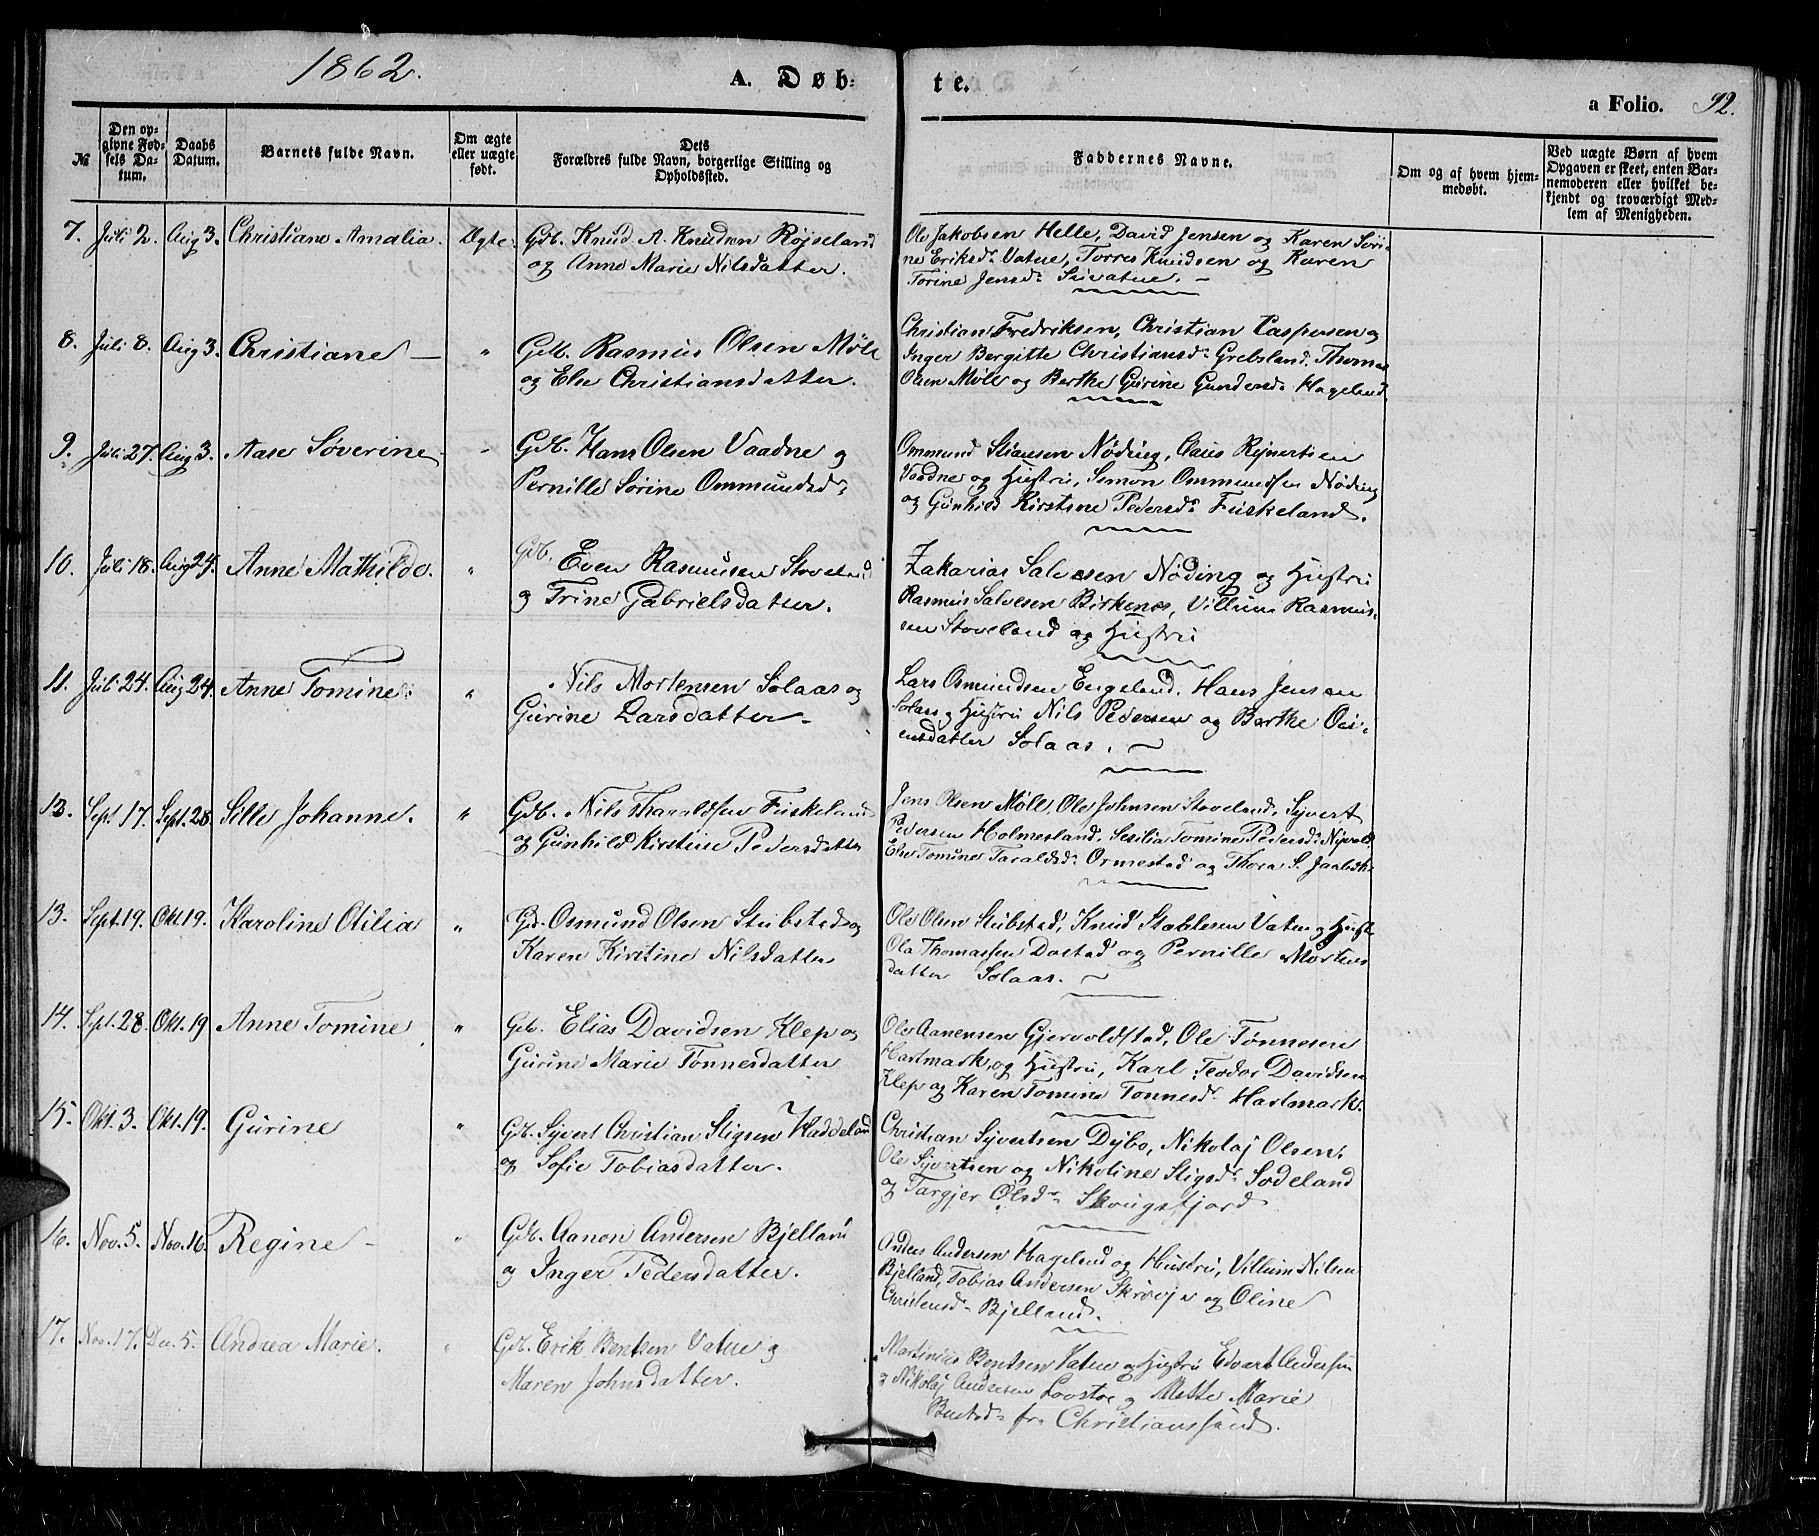 1862.
A. Døb-
te.
a Folio. 92.
№
Den op-
givne Fød-
sels Da-
tum.
Daabs
Datum.
Barnets fulde Navn.
Om ægte
eller uægte
født.
Dets
Forældres fulde Navn, borgerlige Stilling og
Opholdssted.
Faddernes Navne.
Om og af hvem hjem-
medøbt.
Ved uægte Børn af hvem
Opgaven er skeet, enten Bar-
nemoderen eller hvilket be-
kjendt og troværdigt Med-
lem af Menigheden.
7. Juli 2. Aug 3. Christiane Amalia. Ægte. Gdb. Knud A. Knudsen Røjseland
og Anne Marie Nilsdatter.
Ole Jakobsen Helle, David Jensen og Karen Søri-
ne Eriksd: Vatne, Torres Knudsen og Karen
Torine Jensd:
8. Juli 8. Aug 3. Christiane — " Gdb. Rasmus Olsen Møll
og Else Christiansdatter.
Christian Fredriksen, Christian Caspersen og
Inger Bergitte Christiansd: Grebsland, Thomas
Olsen Møll og Berthe Gurine Gundersd: Hageland
9. Juli 27. Aug 3. Aase Søverine " Gdb. Hans Olsen Vaadne og
Pernille Sørine Ommundsd:
Ommund Nøding, Claus
Vaadne og Hustru, Simon Ommundsen Nøding
og Gunhild Kirstine Pedersd: Fuskeland.
10. Juli 18. Aug 24. Anne Mathilde. " Gdb. Even Rasmusen Stoveland
og Trine Gabrielsdatter.
Zakarias Salvesen Nøding og Hustru
Rasmus Salvesen Birkenes, Villum Rasmus-
sen Stoveland og Hustru
11. Juli 24. Aug 24. Anne Tomine " Nils Mortensen Solaas og
Gurine Larsdatter.
Lars Osmundsen Engeland, Hans Jensen
Solaas og Hustru Nils Pedersen og Berthe
datter Solaas.
12. Sept 17. Sept. 28. Sille Johanne. " Gdb. Nils Tharaldsen Fuskeland
og Gunhild Kirstine Pedersdatter
Jens Olsen Møll, Ole Johnsen Stoveland, Syvert
Pedersen Holmesland, Sesilia Tomine Pedersd:
Else Tomine Taraldsd: Ormestad og Thora S.
13. Sept. 19. Okt. 19. Karoline Otilia " Gdb. Osmund Olsen Stubstad og
Karen Kirstine Nilsdatter
Ole Olsen Stubstad, Knud Vatne og Hust
Ola Thomassen Dastad og Pernille Mortens
datter Solaas.
14. Spt. 28. Okt. 19 Anne Tomine " Gdb. Elias Davidsen Klep og
Gurine Marie Tønnesdatter
Ole Aanensen Gjervoldstad, Ole Tønnesen
Hartmark, og Hustru, Karl Teodor Davidsen
Klep og Karen Tomine Tønnesd: Hartmark.
15. Okt. 3. Okt. 19. Gurine " Gdb. Syvert Christian Stigsen Haddeland
og Sofie Tobiasdatter.
Christian Syvertsen Dybo, Nikolaj Olsen,
Ole Syvertsen og Nikoline Stigsd: Sodeland
og Targjer Olsd: Skougsfjord
16. Nov. 5. Nov. 16. Regine — " Gdb. Aanon Andersen Bjelland
og Inger Pedersdatter.
Anders Andersen Hageland og Hustru, Villum Nilsen
Bjelland, Tobias Andersen Skrøvje og Oline
Christensd: Bjelland.
17. Nov. 17. Dec. 5. Andrea Marie. " Gdb. Erik Bentsen Vatne og
Maren Johnsdatter.
Martinius Bentsen Vatne og Hustru Edvart Andersen
og Nikolaj Andersen og Mette Marie
fra Christianssand.